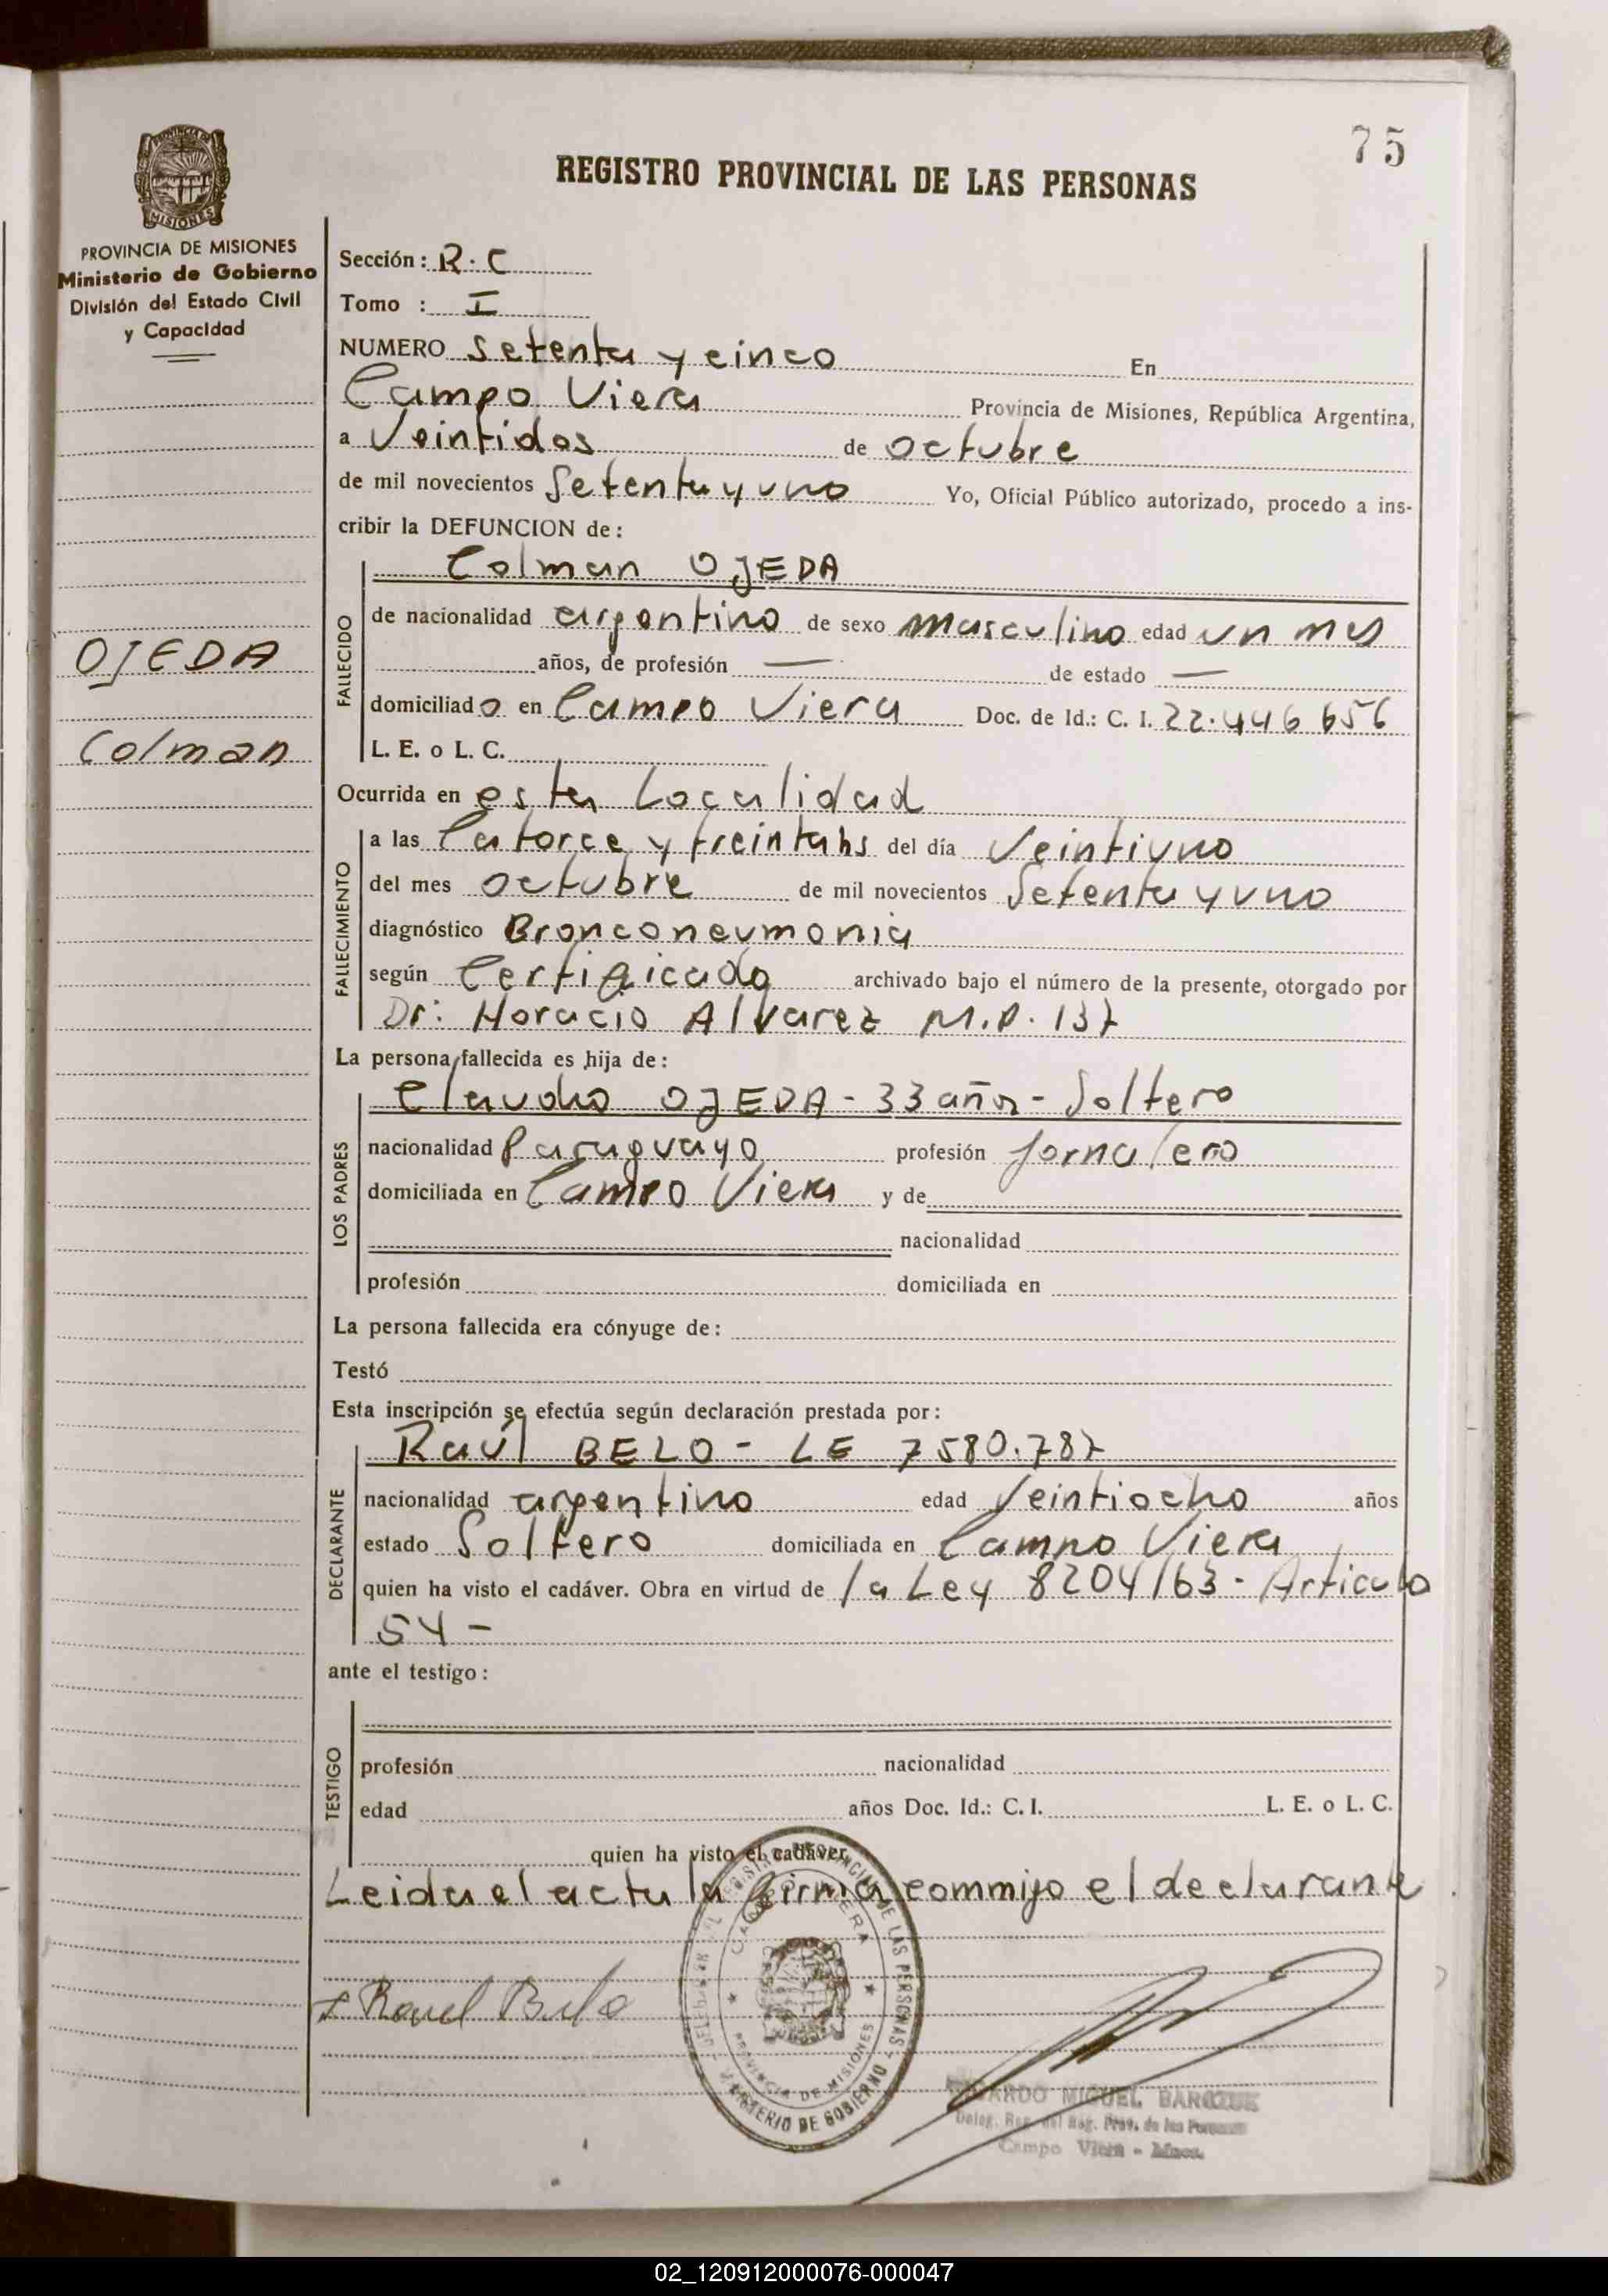 75
REGISTRO PROVINCIAL DE LAS PERSONAS
PROVINCIA DE MISIONES
Ministerio de Gobierno
División del Estado Civil
y Capacidad
OJEDA
Colman
Sección: R.C
Tomo : I
NUMERO setenta y cinco En
Campo Viera Provincia de Misiones, República Argentina,
a Veintidos de octubre
de mil novecientos setenta y uno Yo, Oficial Público autorizado, procedo a ins-
cribir la DEFUNCION de:
FALLECIDO
Colman OJEDA
de nacionalidad argentino de sexo masculino edad un mes
años, de profesión — de estado —
domiciliado en Campo Viera Doc. de Id.: C. I. 22.446656
L. E. o L. C.
Ocurrida en esta Localidad
FALLECIMIENTO
a las Catorce y treinta hs del día Veintiuno
del mes octubre de mil novecientos Setenta y uno
diagnóstico Bronconeumonia
según Certificado archivado bajo el número de la presente, otorgado por
Dr: Horacio Alvarez M.P. 137
La persona fallecida es hija de:
LOS PADRES
Claudio OJEDA - 33 años - Soltero
nacionalidad Paraguayo profesión Jornalero
domiciliada en Campo Viera y de
nacionalidad
profesión domiciliada en
La persona fallecida era cónyuge de:
Testó
Esta inscripción se efectúa según declaración prestada por:
DECLARANTE
Raúl BELO - LE 7580.787
nacionalidad argentino edad Veintiocho años
estado Soltero domiciliada en Campo Viera
quien ha visto el cadáver. Obra en virtud de la Ley 8204/63 - Articulo
54 -
ante el testigo:
TESTIGO
profesión nacionalidad
edad años Doc. Id.: C. I. L. E. o L. C.
quien ha visto el cadáver.
Leida el acta la firma commigo el declarante
CAMPO VIERA
PROVINCIA DE MISIONES
MINISTERIO DE GOBIERNO
MIGUEL
Campo Viera - Mnes.
02_120912000076-000047